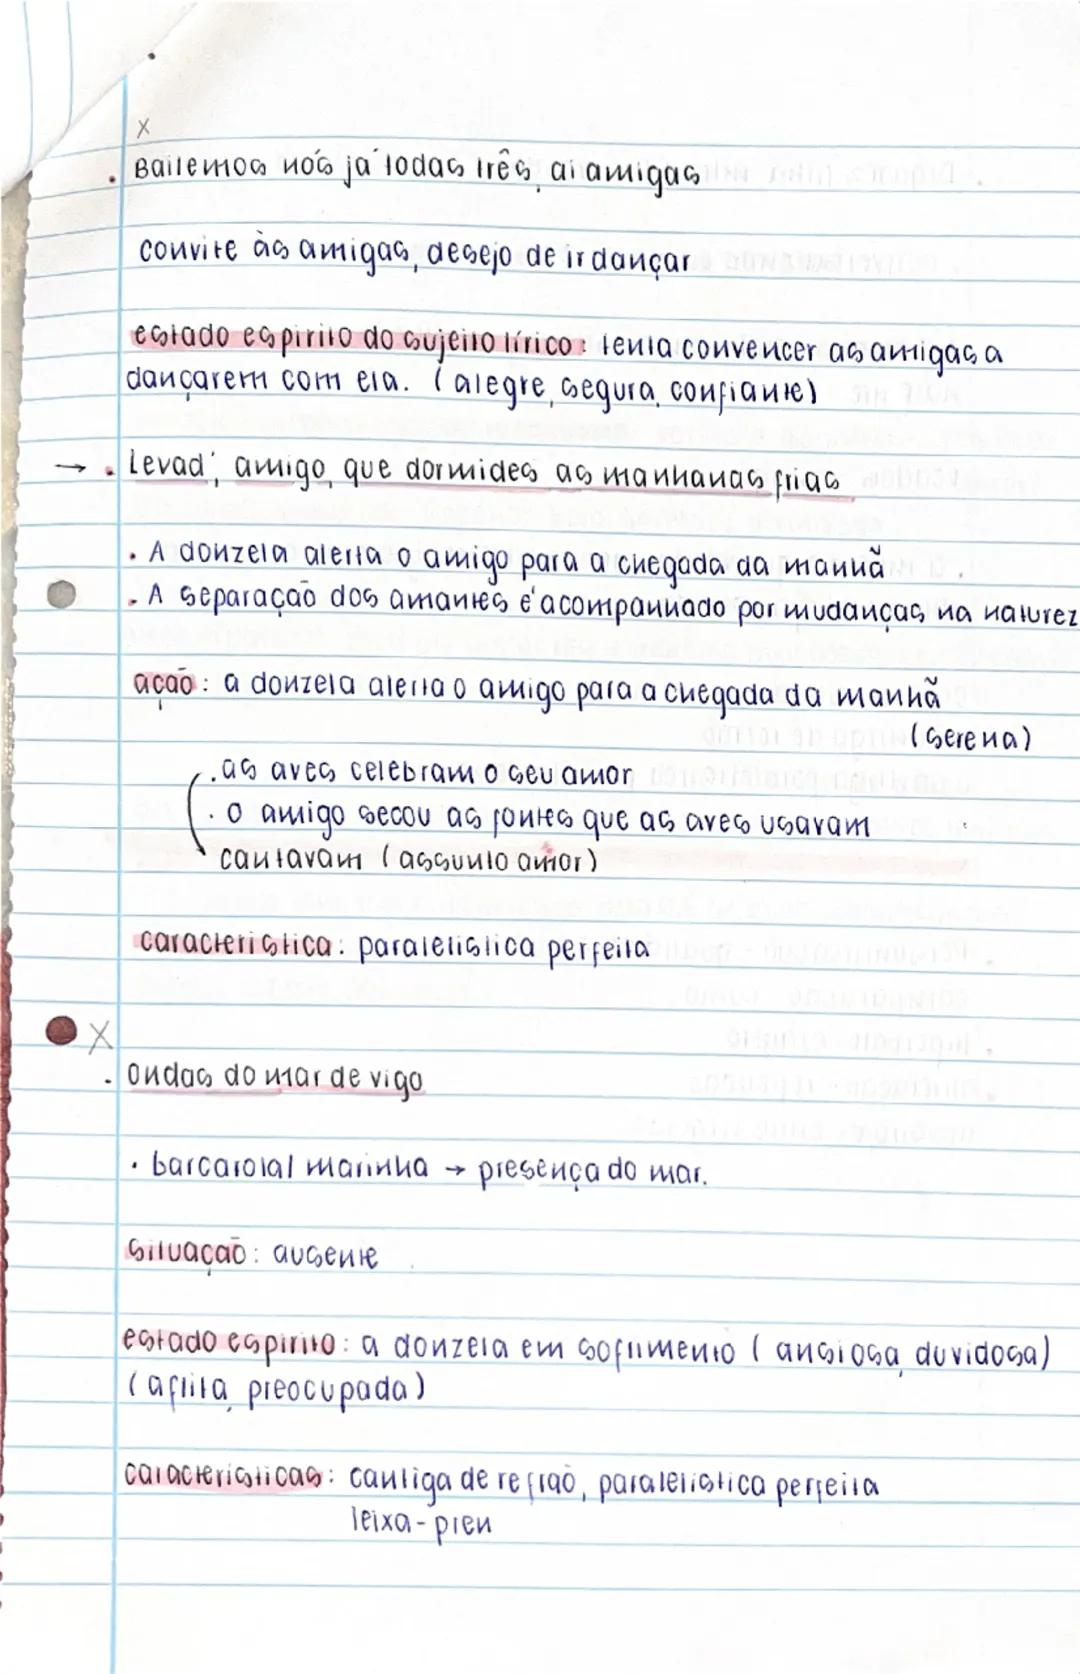 x
. Bailemos nós já todas três, ai amigas
convite às amigas, desejo de ir dançar
estado espirito do sujeito lírico: tenta convencer as amigas a
dançarem com ela. (alegre, segura, confiante)
→ . Levad', amigo, que dormides as manhanas frias
. A donzela alerta o amigo para a chegada da manhã
. A separação dos amantes é acompanhado por mudanças na naturez
ação: a donzela alerta o amigo para a chegada da manhã
(serena)
. as aves celebram o seu amor
. o amigo secou as fontes que as aves usavam
cantavam (assunto amor)
caracteristica: paralelistica perfeita
X
. ondas do mar de vigo
. barcarolal marinha → presença do mar.
situação: ausente
estado espirito: a donzela em sofrimento (ansiosa, duvidosa)
(aflita, preocupada)
caracteristicas: cantiga de refrão, paralelistica perfeita
leixa-pren